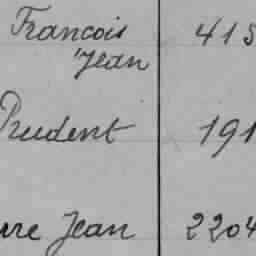 Francois 415
Jean
Prudent 191
rre Jean 2204